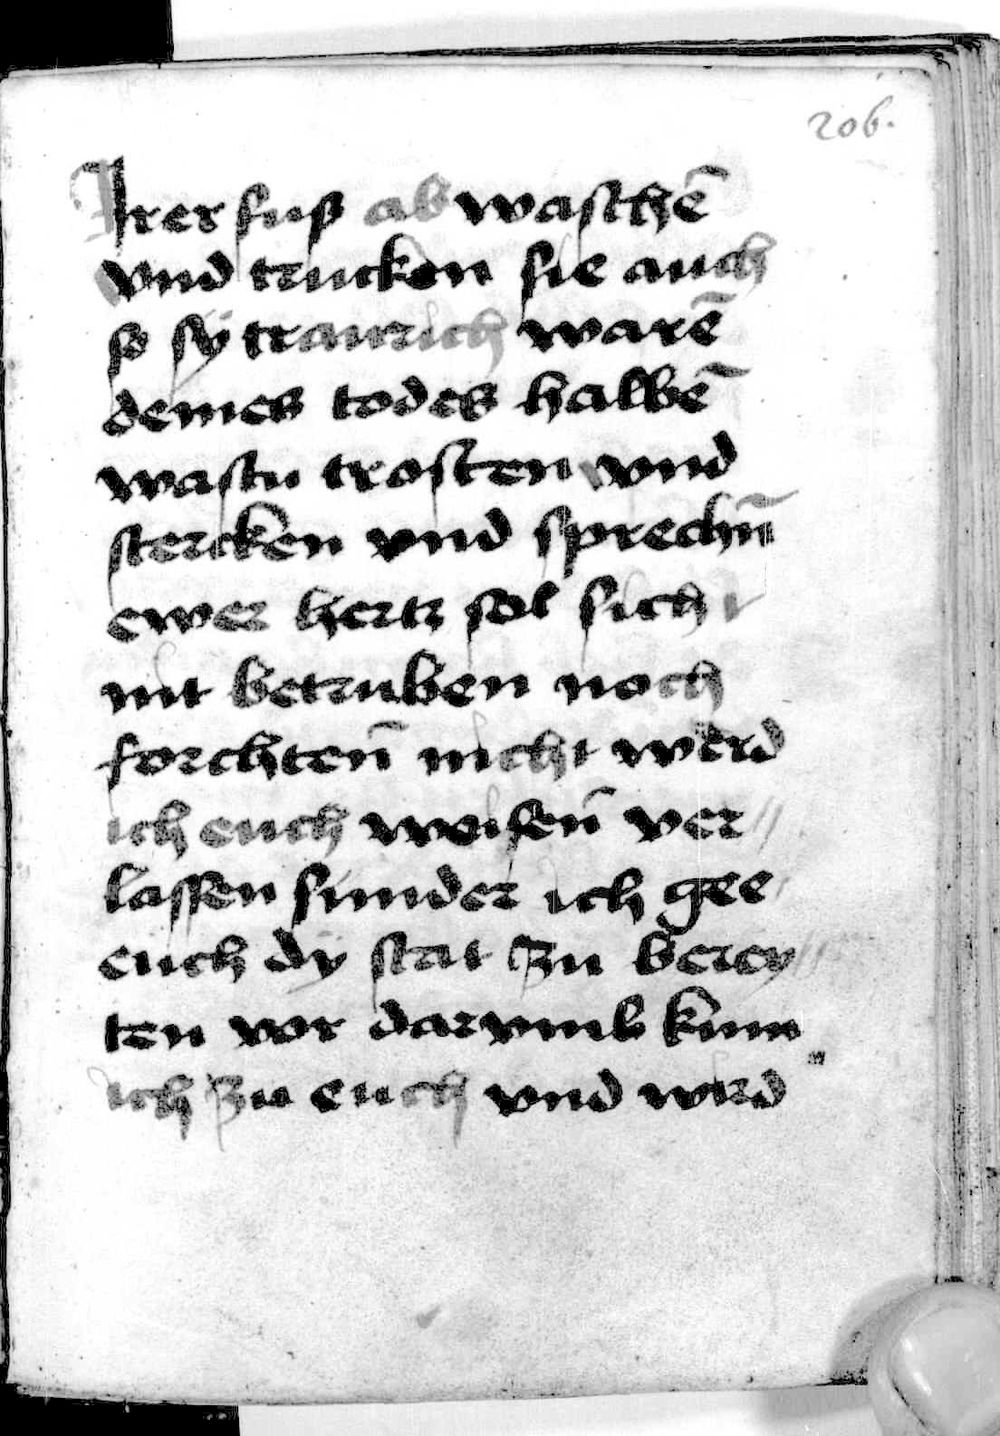 206.
Irer fuß ab waschē
vnd trucken sie auch
so sÿ traurich warē
deines todes halbē
wastu trosten vnd
stercken vnd sprechn̄
ewer hertz sol sich
nit betruben noch
forchten̄ nicht werd
ich euch weisen̄ ver//
lassen sunder ich gee
euch dÿ stat zu berey//
ten vor darvmb kum
ich zu euch vnd wird